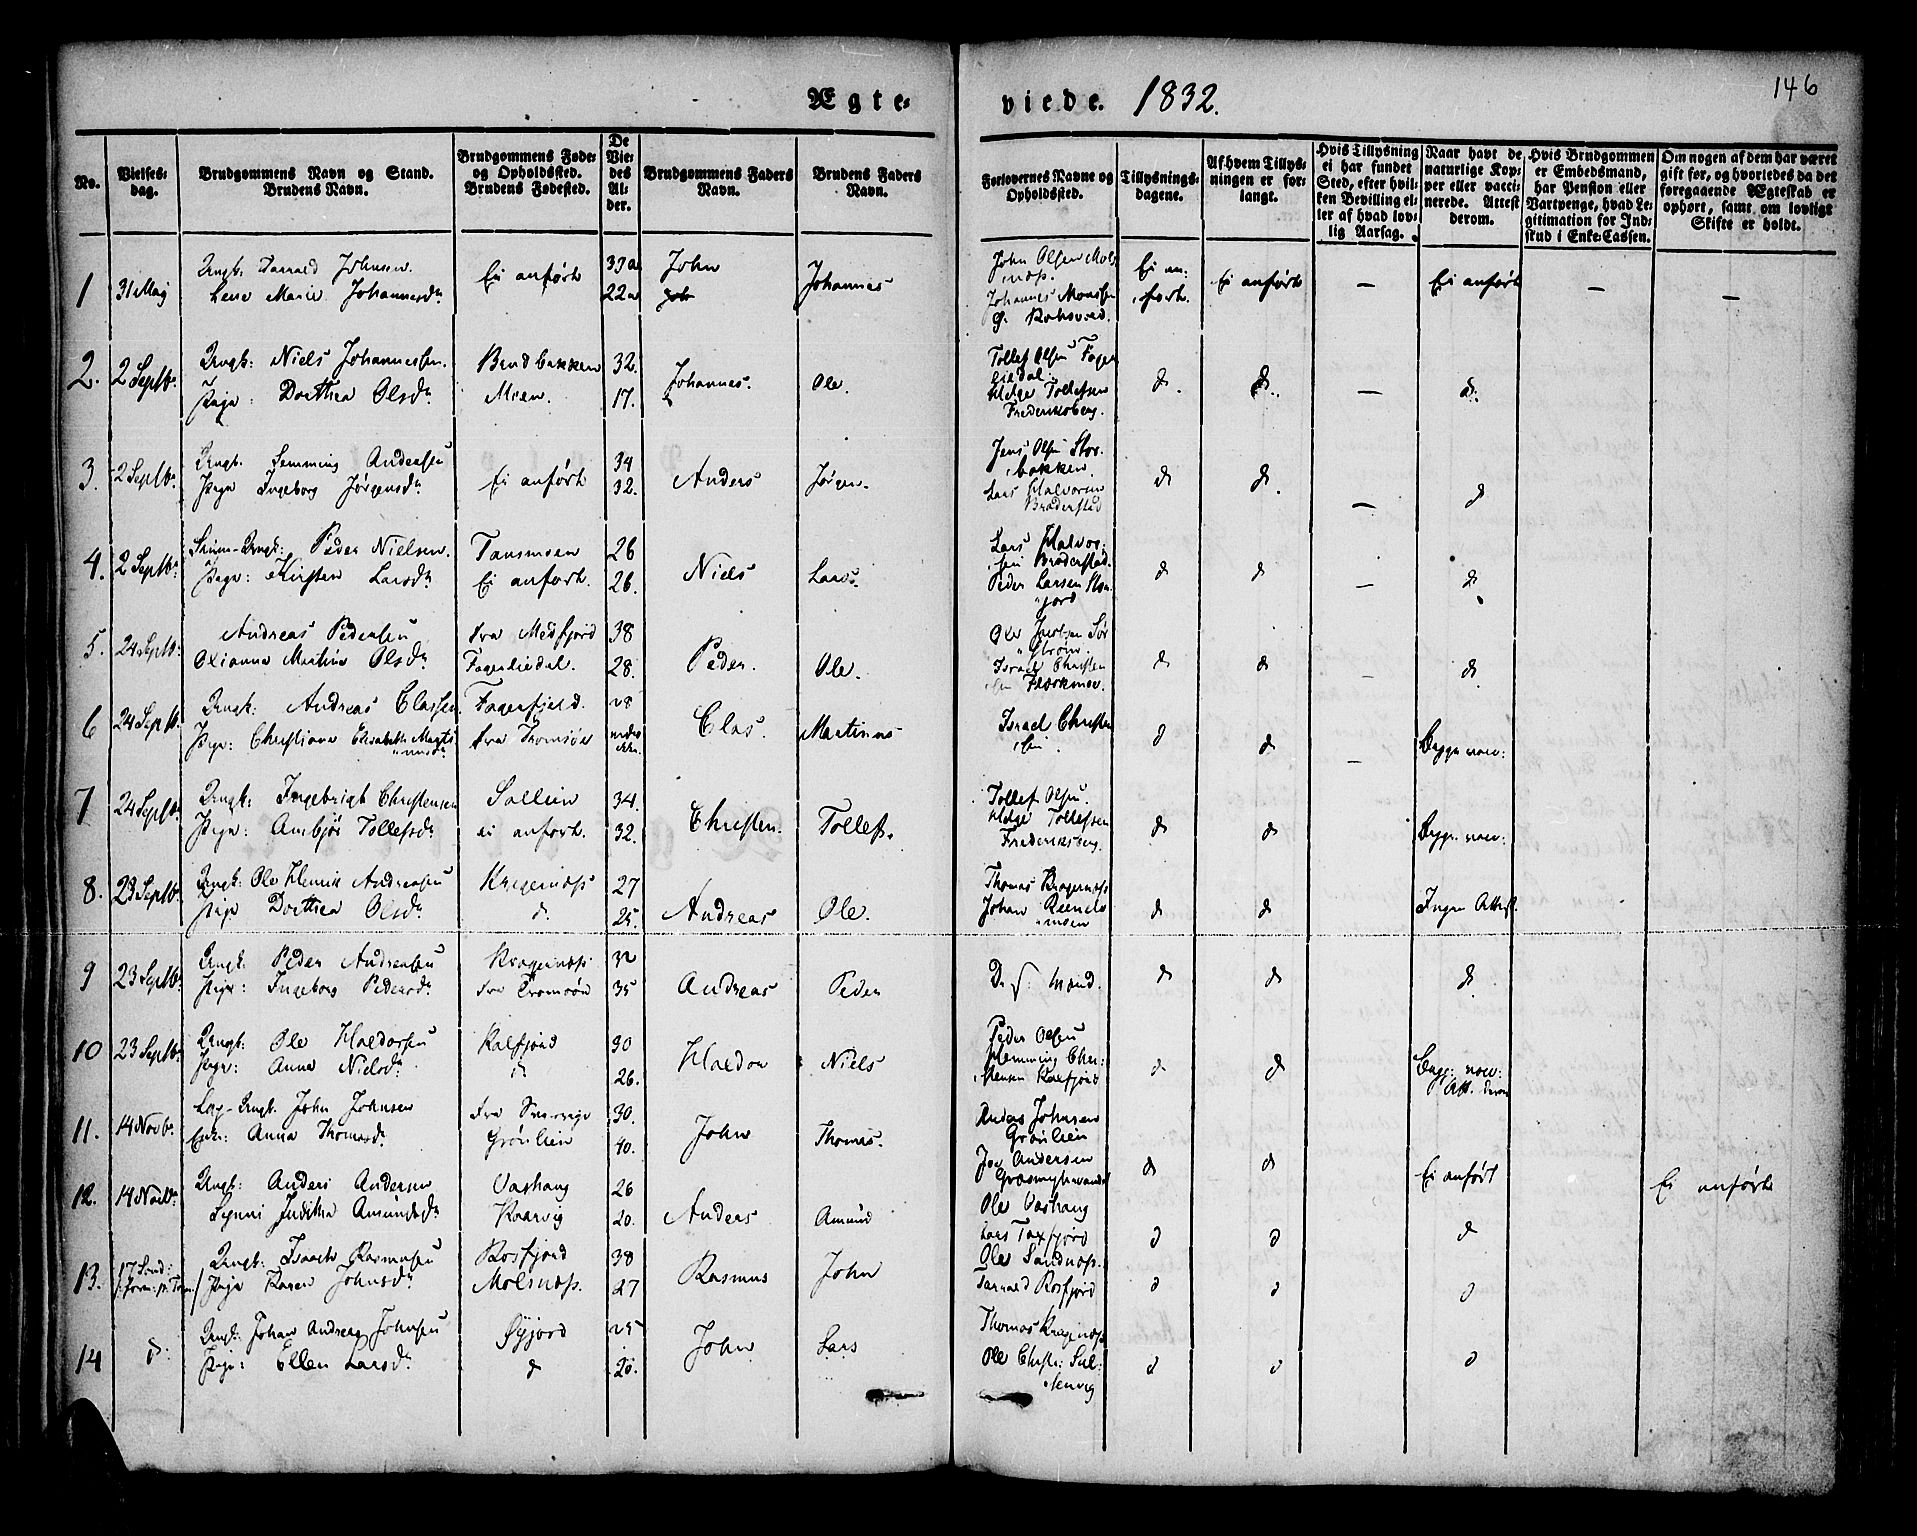 Ægte-
viede. 1832.
146
No.
Vielses-
dag.
Brudgommens Navn og Stand.
Brudens Navn.
Brudgommens Føde-
og Opholdssted.
Brudens Fødested.
De
Vie-
des
Al-
der.
Brudgommens Faders
Navn.
Brudens Faders
Navn.
Forlovernes Navne og
Opholdssted.
Tillysnings-
dagene.
Af hvem Tillys-
ningen er for-
langt.
Hvis Tillysning
ei har fundet
Sted, efter hvil-
ken Bevilling el-
ler af hvad lov-
lig Aarsag.
Naar havt de
naturlige Kop-
per eller vacci-
nerede. Attest
derom.
Hvis Brudgommen
er Embedsmand,
har Pension eller
Vartpenge, hvad Le-
gitimation for Ind-
skud i Enke-Cassen.
Om nogen af dem har været
gift før, og hvorledes da det
foregaaende Ægteskab er
ophørt, samt om lovligt
Skifte er holdt.
1 31 Maj Ungk: Johnsen.
Lene Marie Johannesd:
Ei anført 33 a
22 a John Johannes
John Olsen Mols
næs.
Johannes Monsen
Ei an-
ført. Ei anført — Ei anført — —
2. 2 Septbr. Ungk: Niels Johannessen.
Pige: Dorthea Olsd:
Bendbakken
Moen. 32.
17. Johannes. Ole.
Tollef Olsen Fager
lidal.
Helge Tollefsen
Frederiksberg.
d. d. — d.
3. 2 Septbr. Ungk. Hemming Andersen
Pige Ingeborg Jørgensd:
Ei anført 34
32. Anders Jørgen.
Jens Olsen Stor
bakken.
Lars Halvorsen
Braderstad
d d. — d
4. 2 Septbr. Ungk: Peder Nielsen.
Pige: Kirsten Larsd:
Tansmoen
Ei anført. 26
26. Niels Lars.
Lars Halvor-
sen Braderstad.
Peder Larsen Stor
fjord
d d — d
5. 24 Septbr: Andreas Pedersen
Oxianna Martha Olsd:
fra Medfjord
Fagerlidal. 38
28. Peder. Ole.
Ole Jacobsen Sør
Strøm.
Israel Christen
sen
d d — d
6 24 Septbr. Ungk: Andreas Classen.
Pige: Christianna Elisabeth Marti
nusd:
Fagerfjeld.
fra Tromsøe 28
Clas. Martinus
Israel Christen
sen.
d d — Begge vacc:
7 24 Septbr. Ungk: Ingebrigt Christensen
Pige: Anbjør Tollefsd:
Sollien
ei anført. 34.
32. Christen. Tollef.
Tollef Olsen.
Helge Tollefsen
Frederiksberg.
d d Begge vacc:
8. 23 Septbr Ungk: Ole Henrik Andreasen
Pige Dorthea Olsd:
Kragernæs
d. 27
25. Andreas Ole.
Thomas Kragernæs
Johan
d d Ingen Attest.
9 23 Septbr. Ungk: Peder Andreasen
Pige: Ingeborg Pedersd:
Kragernæs
fra Tromsøen 32
35 Andreas Peder
D. s. Mænd.
d d d
10 23 Septbr. Ungk: Ole Haldorsen
Pige: Anna Nielsd:
Kalfjord
d. 30
26. Haldor Niels
Peder Olsen
Hemming Chri-
stensen Kalfjord
d d Begge vacc:
Att. derom
11. 14 Novbr. Ungk. John Johnsen
Enke: Anna Thomasd:
fra Sverrige
Grønlien 30.
40. John Thomas.
Anders Johnsen
Grønlien
Joe Andersen
d d Ei anført Ei anført
12. 14 Novbr. Ungk: Anders Andersen
Juditha Amundsd:
Vashaug
Kaarvig 26
20. Anders Amund
Ole Vashaug
Lars Taxfjord
d d d
13. 17 Sønd: Ungk: Isaach Rasmusen
Pige Karen Johnsd:
Rosfjord
Molsnæs. 38
27 Rasmus John
Ole Sandnæs.
Rosfjord
d d d
14 d: Ungk: Johan Andreas Johnsen
Pige: Ellen Larsd:
Øyjord
d 25
20. John Lars
Thomas Kragenæs
Ole Christ:
d d d